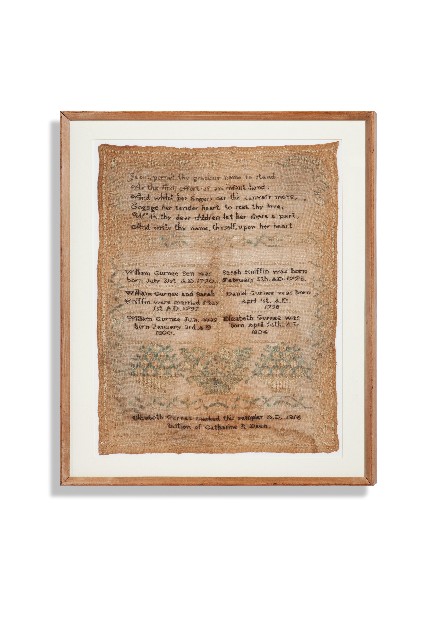 permit the gracious name to stand
the first effort of an infant hand
And whilst her fingers o'er the canvass move
Engage her tender heart to seek thy love
With thy dear children let her share a part
And write thy name, thyself, upon her heart
William Gurnee Sen was
born July 31st A.D. 1770.
Sarah Kniffin was born
February 5th A.D. 1776.
William Gurnee and Sarah
Kniffin were married May
1st A.D. 1797
Daniel Gurnee was born
April 1st A.D.
1798
William Gurnee Jun. was
born January 3rd A.D.
1800.
Elizabeth Gurnee was
born April A.D.
Elizabeth Gurnee worked this sampler A.D.
tuition of Catharine Dean